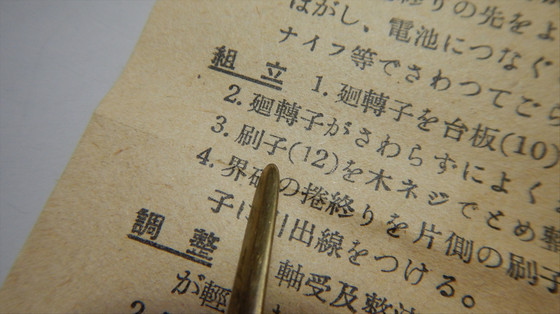 はがし、電池につなぐ
ナイフ等でさわつてごら
組立 1. 廻轉子を台板(10)
2. 廻轉子がさわらずによく
3. 刷子(12)を木ネジでとめ整
4. 界磁の捲終りを片側の刷子
子に引出線をつける。
調整
軸受及整流
が輕
2.